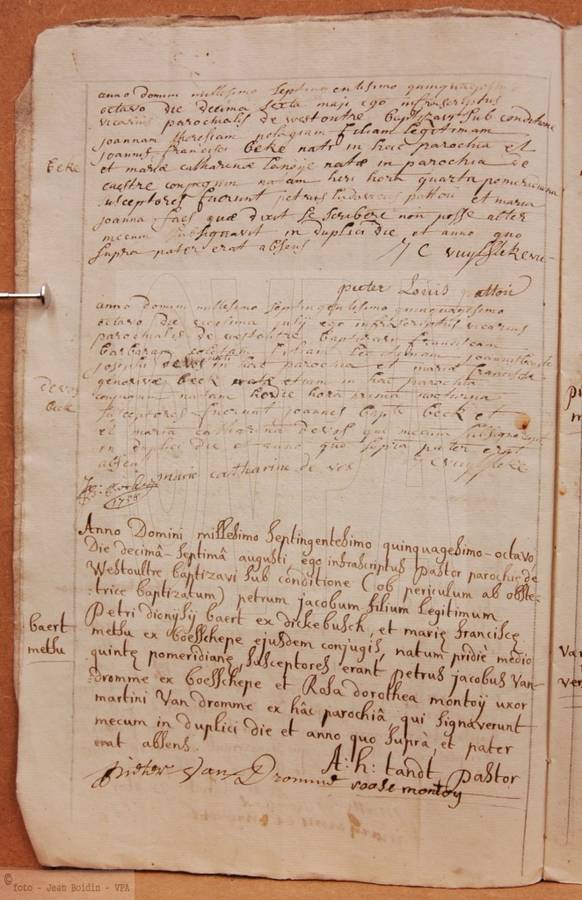 anno domini millesimo septingentesimo quinquagesimo
octavo die decima sexta maji ego infrascriptus
vicarius parochialis de westoutre baptizavi sub conditione
joannam theresiam pelagiam filiam legitimam
joannis francisci Beke nati in hac parochia et
et mariæ catharinæ lanoije natæ in parochia de
caestre conjugum natam heri hora quarta pomeridiana
susceptores fuerunt petrus ludovicus pattou et maria
joanna faes quæ dixit se scribere non posse alter
mecum subsignavit in duplici die et anno quo
supra pater erat absens J C vuylstekevic
Beke
pieter Louis pattou
anno domini millesimo septingentesimo quinquagesimo
octavo die vicesima julij ego infrascriptus vicarius
parochialis de westoutre baptizavi franciscam
barbaram filiam legitimam joannis
josephi devos in hac parochia et mariæ franciscæ
genovevæ beck natæ etiam in hac parochia
conjugum natam hodie hora prima nocturna
susceptores fuerunt joannes bapt beck et
et maria catharina devos qui mecum subsignarunt
in duplici die et anno quo supra pater erat
absens
devos
beck
marie catharine de vos
1758
Anno Domini millesimo septingentesimo quinquagesimo-octavo
Die decimâ-septimâ augusti ego infrascriptus pastor parochiæ de
Westoultre baptizavi sub conditione (ob periculum ab obste-
:trice baptizatum) petrum jacobum filium legitimum
Petri dionijsij baert ex dickebusch, et mariæ franciscæ
metsu ex boesschepe ejusdem conjugis, natum pridiè medio
quintæ pomeridianæ, susceptores erant petrus jacobus Van-
dromme ex boesschepe et Rosa dorothea montoij uxor
martini Van dromme ex hâc parochiâ qui signaverunt
mecum in duplici die et anno quo suprà, et pater
erat absens.
baert
metsu
A: h: tandt pastor
pieter Van Dromme roose montoy
© foto - Jean Boidin - VPA